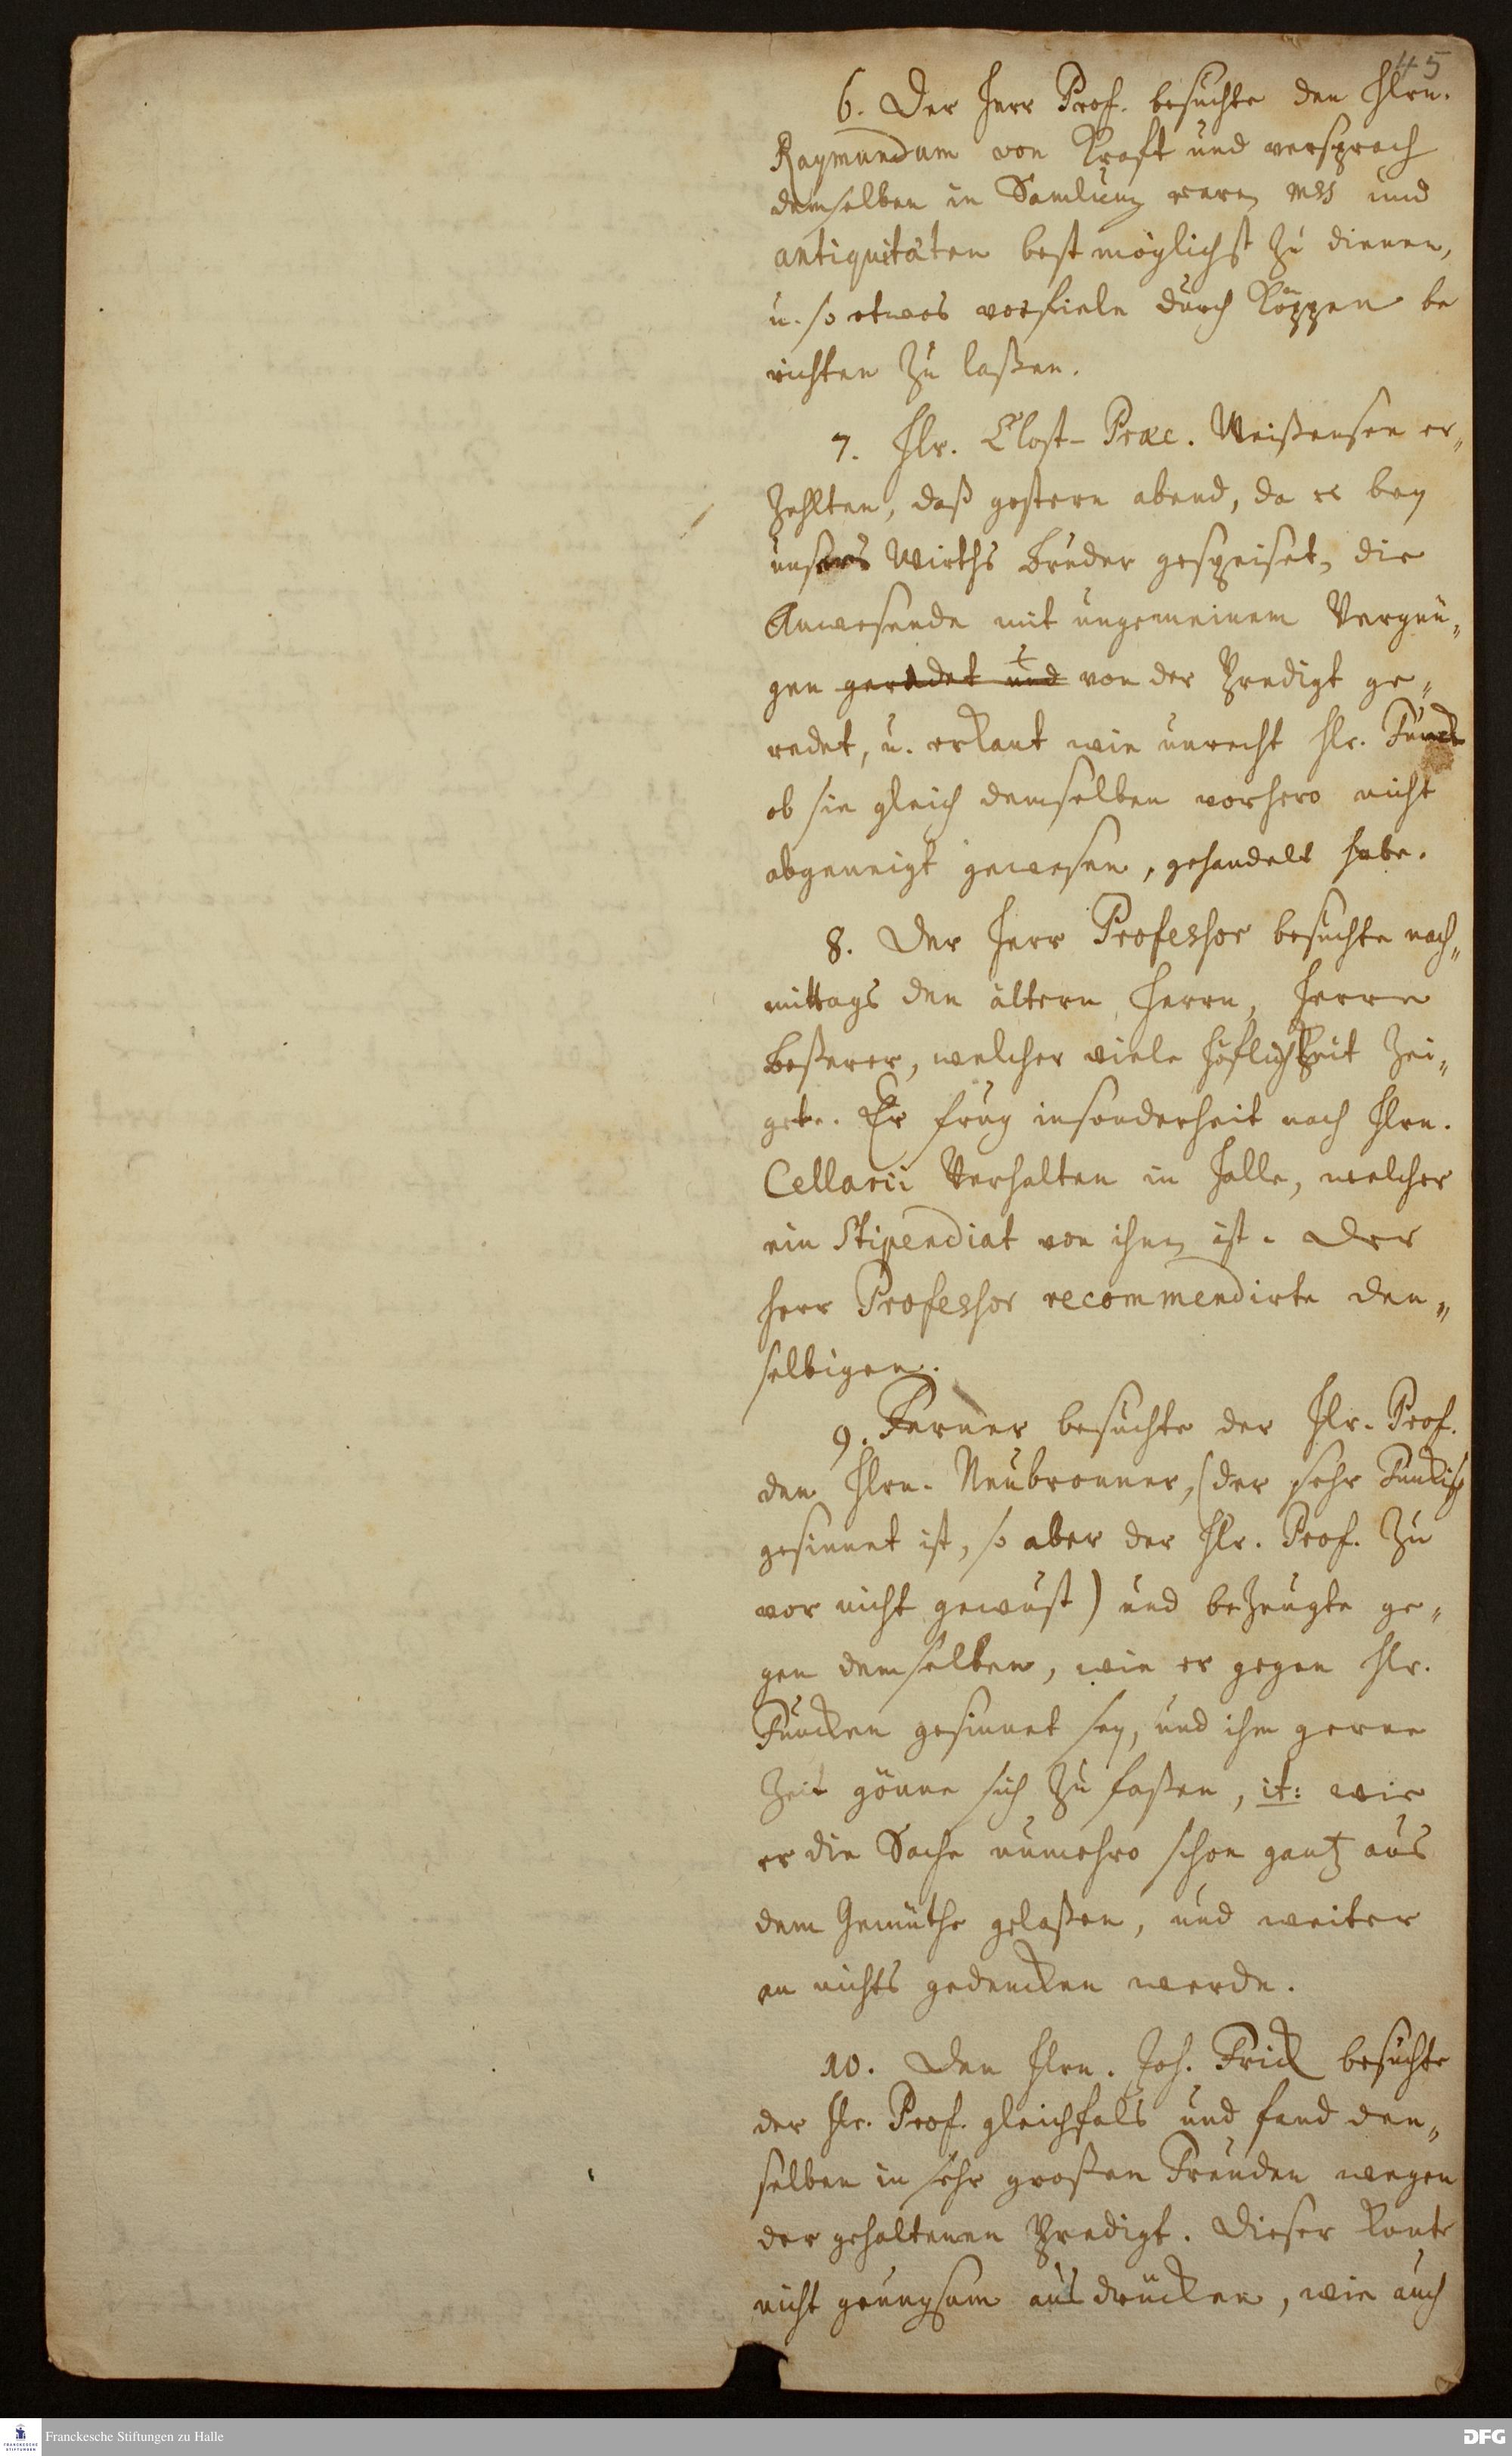 45
6. Der Herr Prof. besuchte den Hrn.
Raymundum von Krafft und versprach
demselben in Samlung raren mss und
antiquitäten best möglichst zu dienen,
u. so etwas vorfiele durch Köppen be
richten zu laßen.
7. Hr. Clost-Praec. Weißensee er„
zehlten, daß gestern abend, da er bey
unsers Wirths Bruder gespeiset, die
Anwesende mit ungemeinem Vergnü„
gen geredet und von der Predigt ge„
redet, u. erkant wie unrecht Hr. Funck
ob sie gleich demselben vorhero nicht
abgeneigt gewesen, gehandelt habe.
8. Der Herr Professor besuchte nach„
mittags den ältern Herrn, Herrn
Beßerer, welcher viele Höflichkeit zei„
gete. Er frug insonderheit nach Hrn.
Cellarii Verhalten in Halle, welcher
ein Stipendiat von ihm ist. Der
Herr Professor recommendirte den„
selbigen.
9. Ferner besuchte der Hr. Prof.
den Hrn. Neubronner, (der sehr Funckisch
gesinnet ist, so aber der Hr. Prof. zu
vor nicht gewust) und bezeugte ge„
gen demselben, wie er gegen Hr.
Funcken gesinnet sey, und ihm gerne
Zeit gönne sich zu faßen, it: wie
er die Sache numehro schon gantz aus
dem Gemüthe gelaßen, und weiter
an nichts gedencken werde.
10. Den Hrn. Joh. Frick besuchte
der Hr. Prof. gleichfals und fand den„
selben in sehr großen Freuden wegen
der gehaltenen Predigt. Dieser konte
nicht genugsam ausdrücken, wie auch
Franckesche Stiftungen zu Halle
DFG